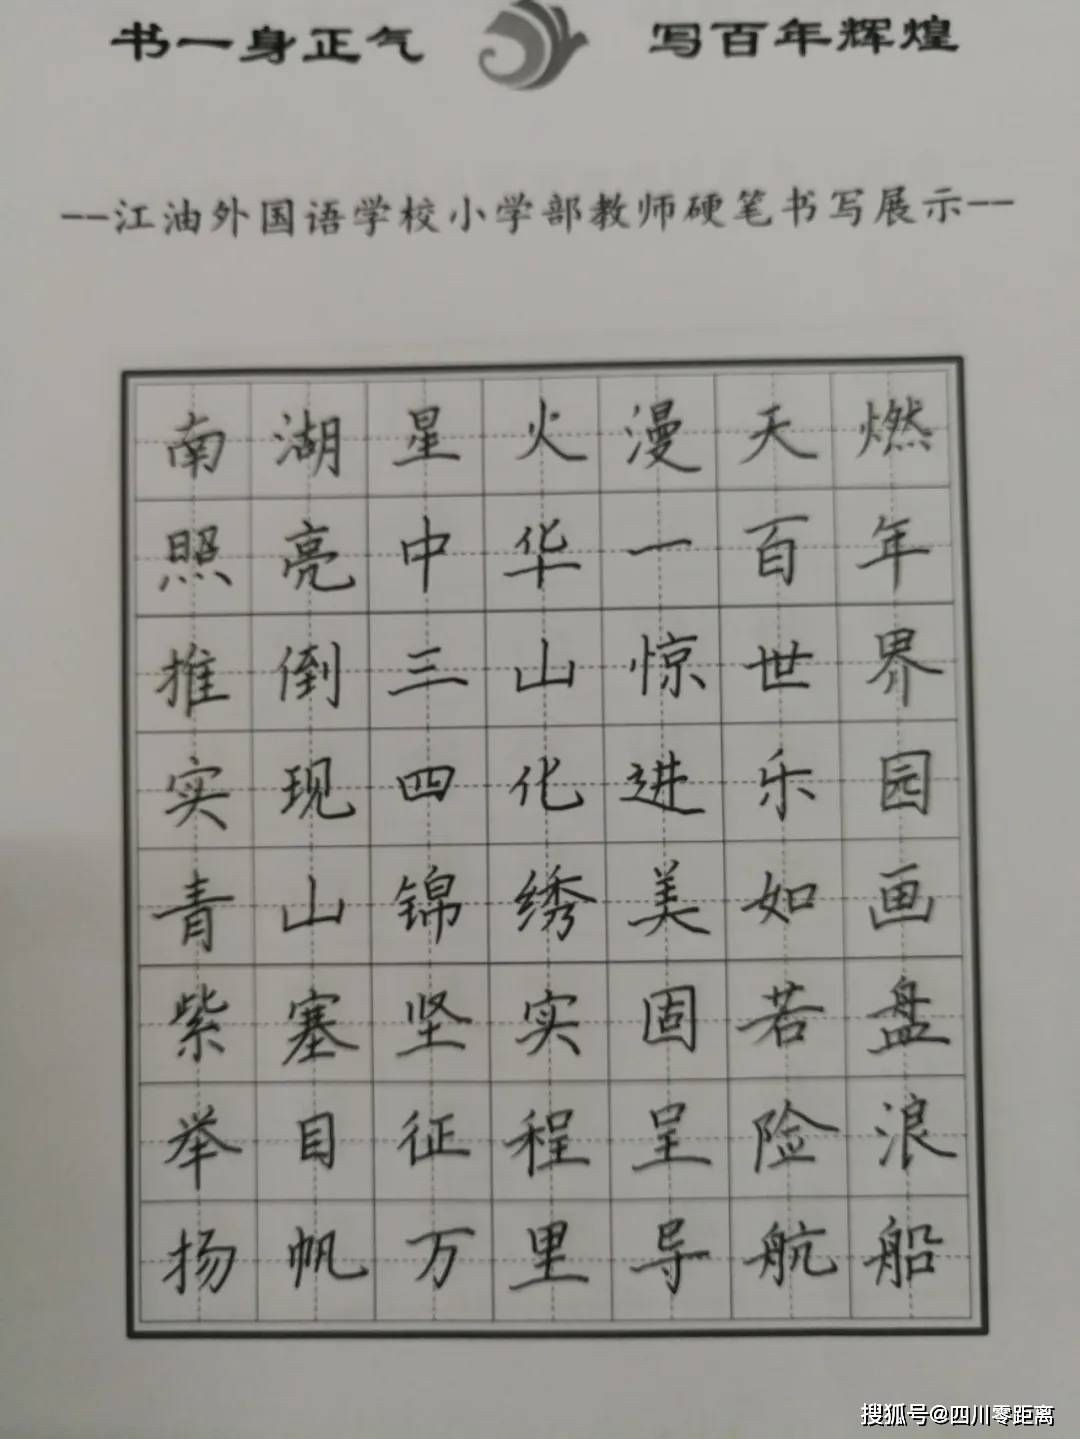 书一身正气 写百年辉煌
--江油外国语学校小学部教师硬笔书写展示--
南湖星火漫天燃
照亮中华一百年
推倒三山惊世界
实现四化进乐园
青山锦绣美如画
紫塞坚实固若盘
举目征程呈险浪
扬帆万里导航船
搜狐号@四川零距离